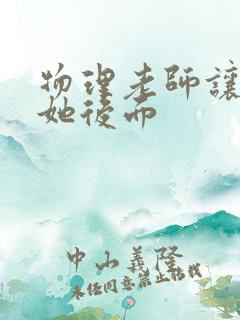 物理老師讓
她後面
中山義隆
未经同意禁止转载